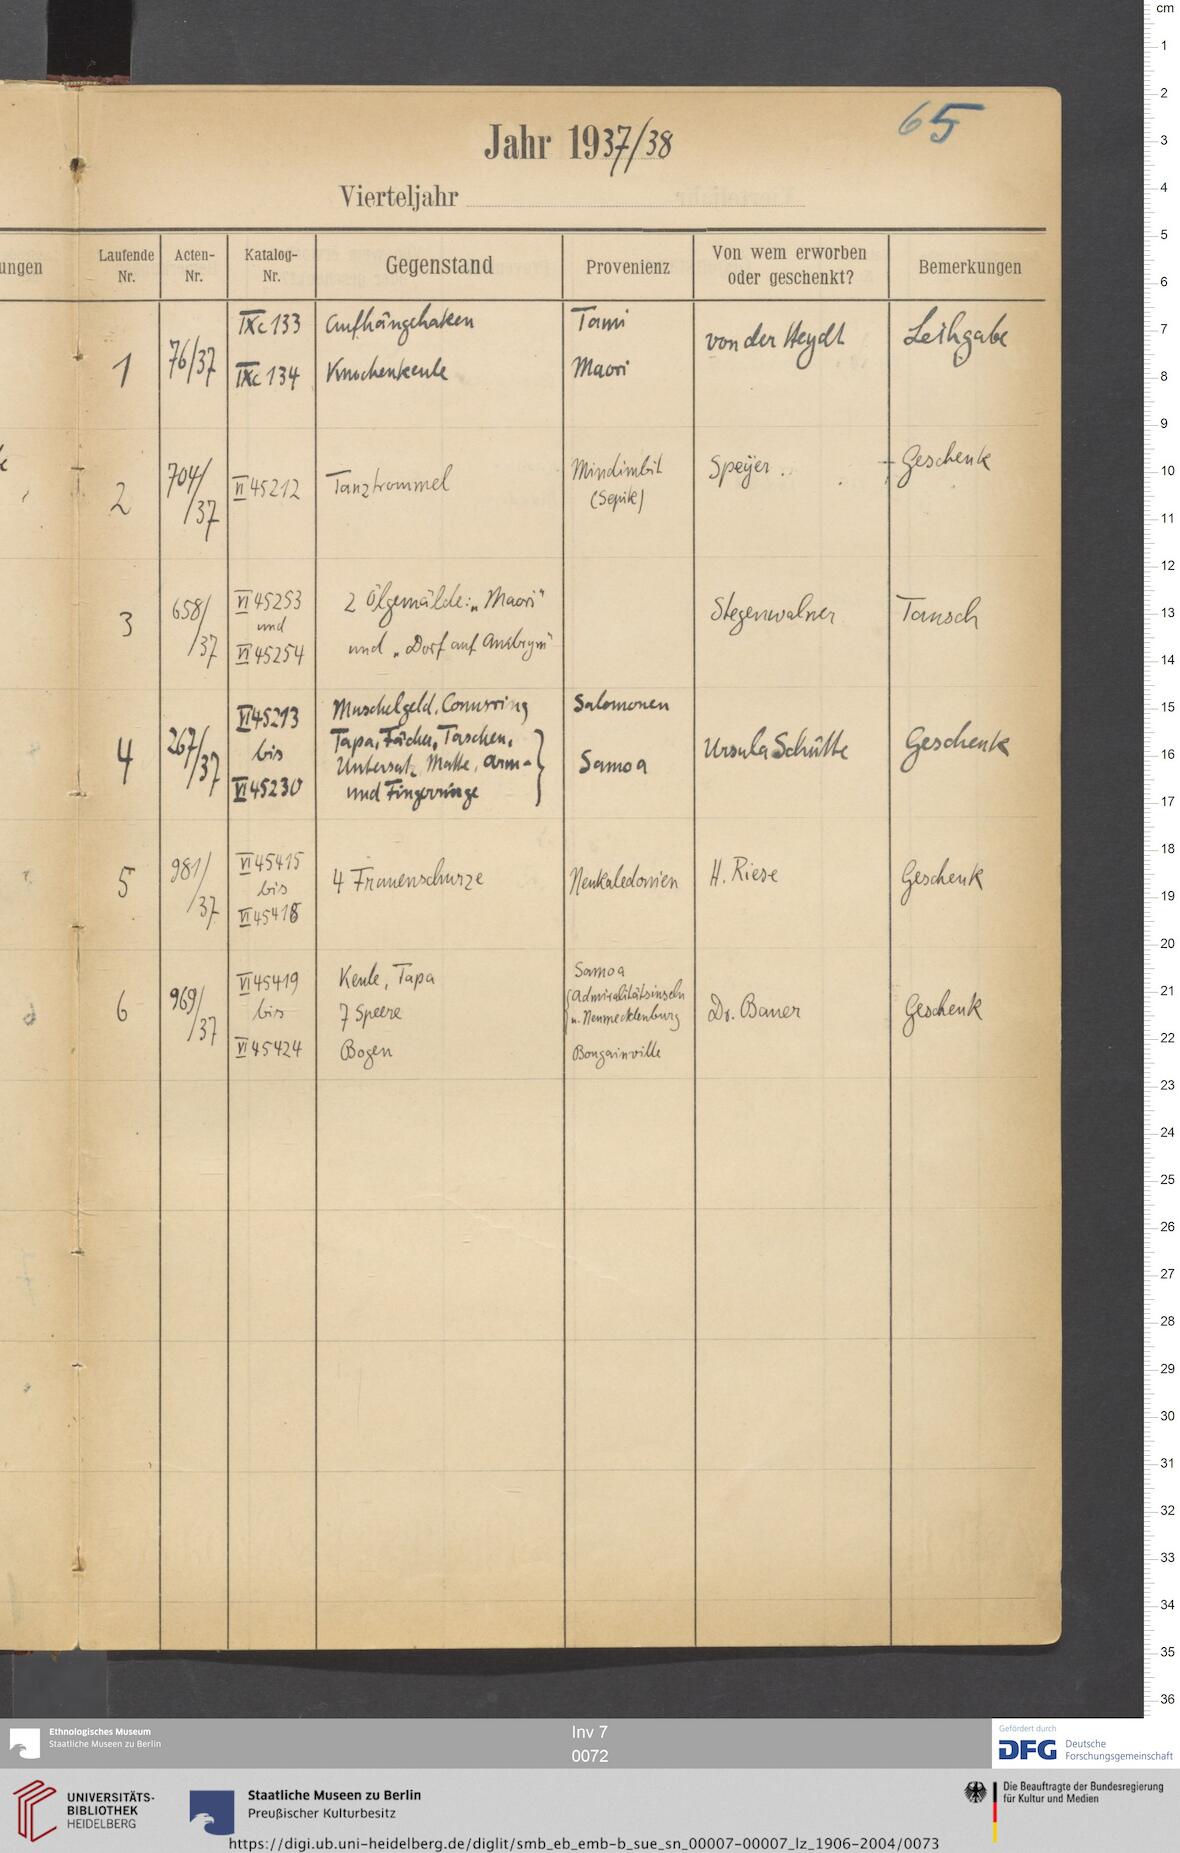 65
Jahr 1937/38
Vierteljahr
ungen
Laufende Nr.
Acten-Nr.
Katalog-Nr.
Gegenstand
Provenienz
Von wem erworben oder geschenkt?
Bemerkungen
1 76/37 IXc 133 Aufhängehaken Tami von der Heydt Leihgabe
IXc 134 Knochenkeule Maori
2 704/37 VI 45212 Tanztrommel Mindimbit (Sepik) Speyer Geschenk
3 658/37 VI 45253 2 Ölgemälde: „Maori" Stegenwalner Tausch
und
VI 45254 und „Dorf auf Ambrym"
4 267/37 VI 45213 Muschelgeld, Conusring Salomonen Ursula Schütte Geschenk
bis Tapa, Fächer, Taschen,
Untersatz, Matte, Arm- Samoa
VI 45230 und Fingerringe
5 981/37 VI 45415 4 Frauenschurze Neukaledonien H. Riese Geschenk
bis
VI 45418
6 969/37 VI 45419 Keule, Tapa Samoa Dr. Bauer Geschenk
bis 7 Speere Admiralitätsinseln
u. Neumecklenburg
VI 45424 Bogen Bougainville
cm
1
2
3
4
5
6
7
8
9
10
11
12
13
14
15
16
17
18
19
20
21
22
23
24
25
26
27
28
29
30
31
32
33
34
35
36
Ethnologisches Museum
Staatliche Museen zu Berlin
Inv 7
0072
Gefördert durch
DFG Deutsche
Forschungsgemeinschaft
UNIVERSITÄTS-
BIBLIOTHEK
HEIDELBERG
Staatliche Museen zu Berlin
Preußischer Kulturbesitz
Die Beauftragte der Bundesregierung
für Kultur und Medien
https://digi.ub.uni-heidelberg.de/diglit/smb_eb_emb-b_sue_sn_00007-00007_lz_1906-2004/0073